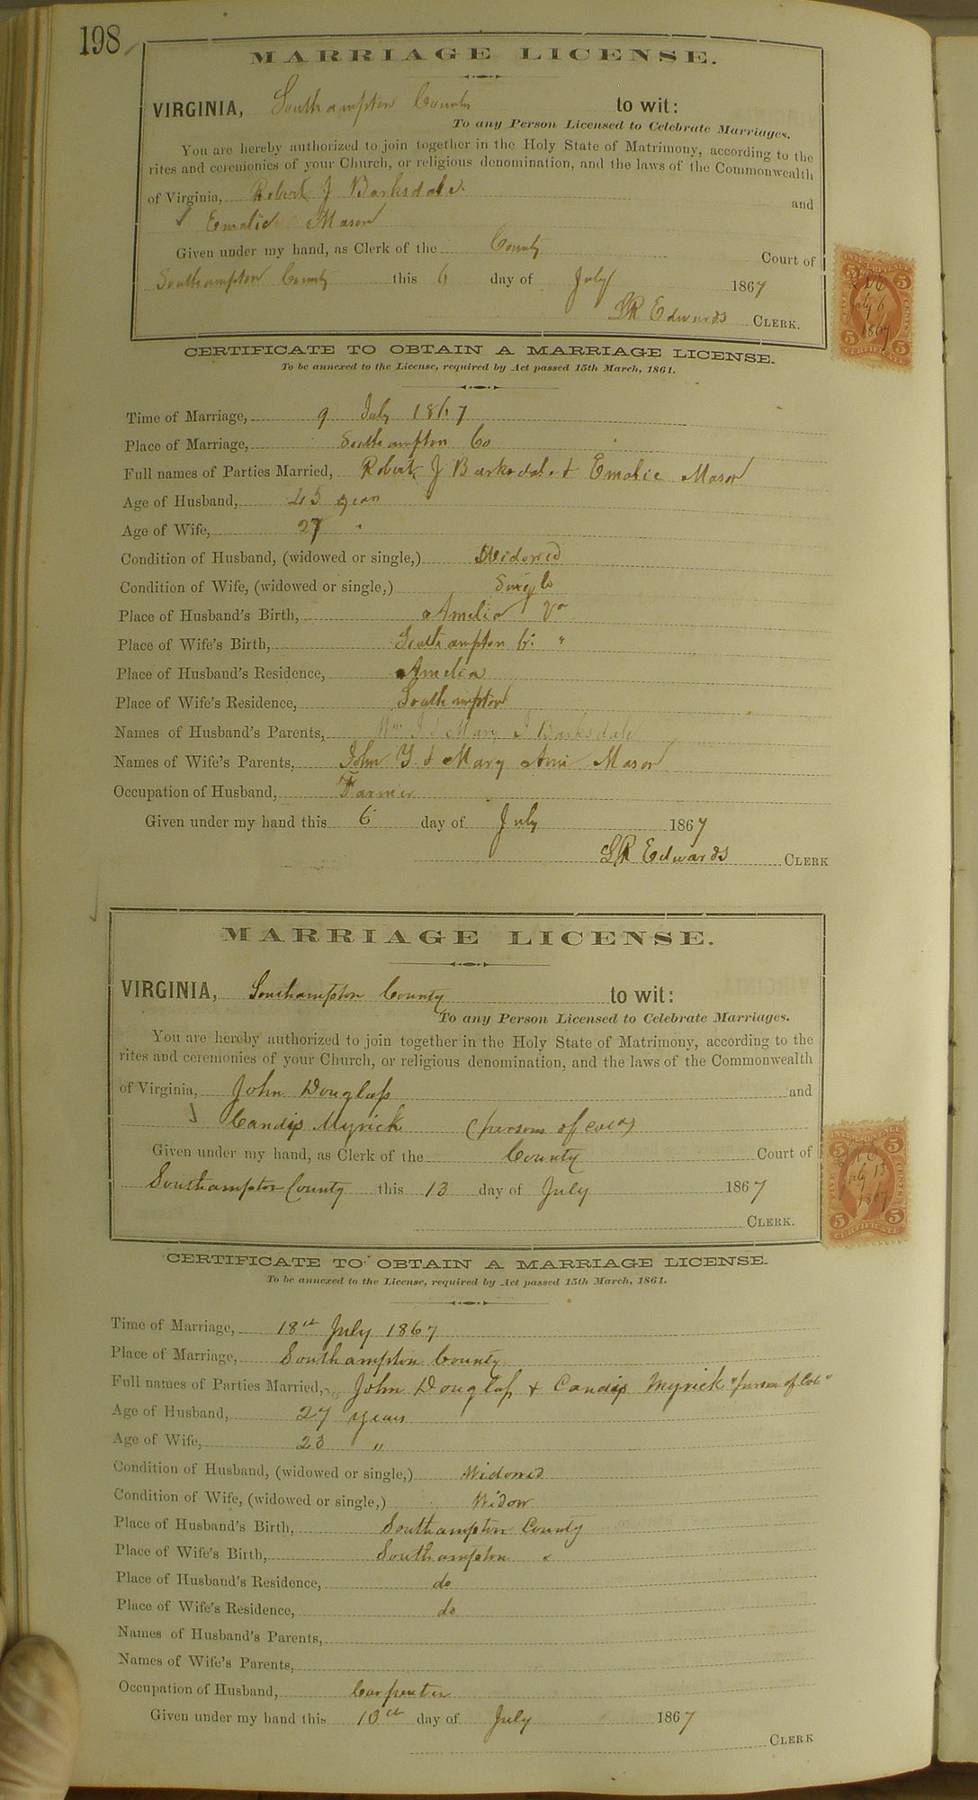 198
MARRIAGE LICENSE.
VIRGINIA, Southampton County to wit:
To any Person Licensed to Celebrate Marriages.
You are hereby authorized to join together in the Holy State of Matrimony, according to the
rites and ceremonies of your Church, or religious denomination, and the laws of the Commonwealth
of Virginia, Robert J Barksdale and
Emolie Mason
Given under my hand, as Clerk of the County Court of
Southampton County this 6 day of July 1867
LR Edwards CLERK.
July 6
1867
CERTIFICATE TO OBTAIN A MARRIAGE LICENSE.
To be annexed to the License, required by Act passed 15th March, 1861.
Time of Marriage, 9 July 1867
Place of Marriage, Southampton Co
Full names of Parties Married, Robert J Barksdale & Emolie Mason
Age of Husband, 45 years
Age of Wife, 27 "
Condition of Husband, (widowed or single,) Widowed
Condition of Wife, (widowed or single,) Single
Place of Husband's Birth, Amelia Va
Place of Wife's Birth, Southampton Co "
Place of Husband's Residence, Amelia
Place of Wife's Residence, Southampton
Names of Husband's Parents, Wm J & Mary J Barksdale
Names of Wife's Parents, John Y & Mary Ann Mason
Occupation of Husband, Farmer
Given under my hand this 6 day of July 1867
LR Edwards CLERK
MARRIAGE LICENSE.
VIRGINIA, Southampton County to wit:
To any Person Licensed to Celebrate Marriages.
You are hereby authorized to join together in the Holy State of Matrimony, according to the
rites and ceremonies of your Church, or religious denomination, and the laws of the Commonwealth
of Virginia, John Douglass and
Candis Myrick (persons of cold)
Given under my hand, as Clerk of the County Court of
Southampton County this 13 day of July 1867
CLERK.
July 13
1867
CERTIFICATE TO OBTAIN A MARRIAGE LICENSE.
To be annexed to the License, required by Act passed 15th March, 1861.
Time of Marriage, 18th July 1867
Place of Marriage, Southampton County
Full names of Parties Married, John Douglass & Candis Myrick "person of Col"
Age of Husband, 27 years
Age of Wife, 23 "
Condition of Husband, (widowed or single,) Widowed
Condition of Wife, (widowed or single,) Widow
Place of Husband's Birth, Southampton County
Place of Wife's Birth, Southampton "
Place of Husband's Residence, do
Place of Wife's Residence, do
Names of Husband's Parents,
Names of Wife's Parents,
Occupation of Husband, Carpenter
Given under my hand this 13th day of July 1867
CLERK